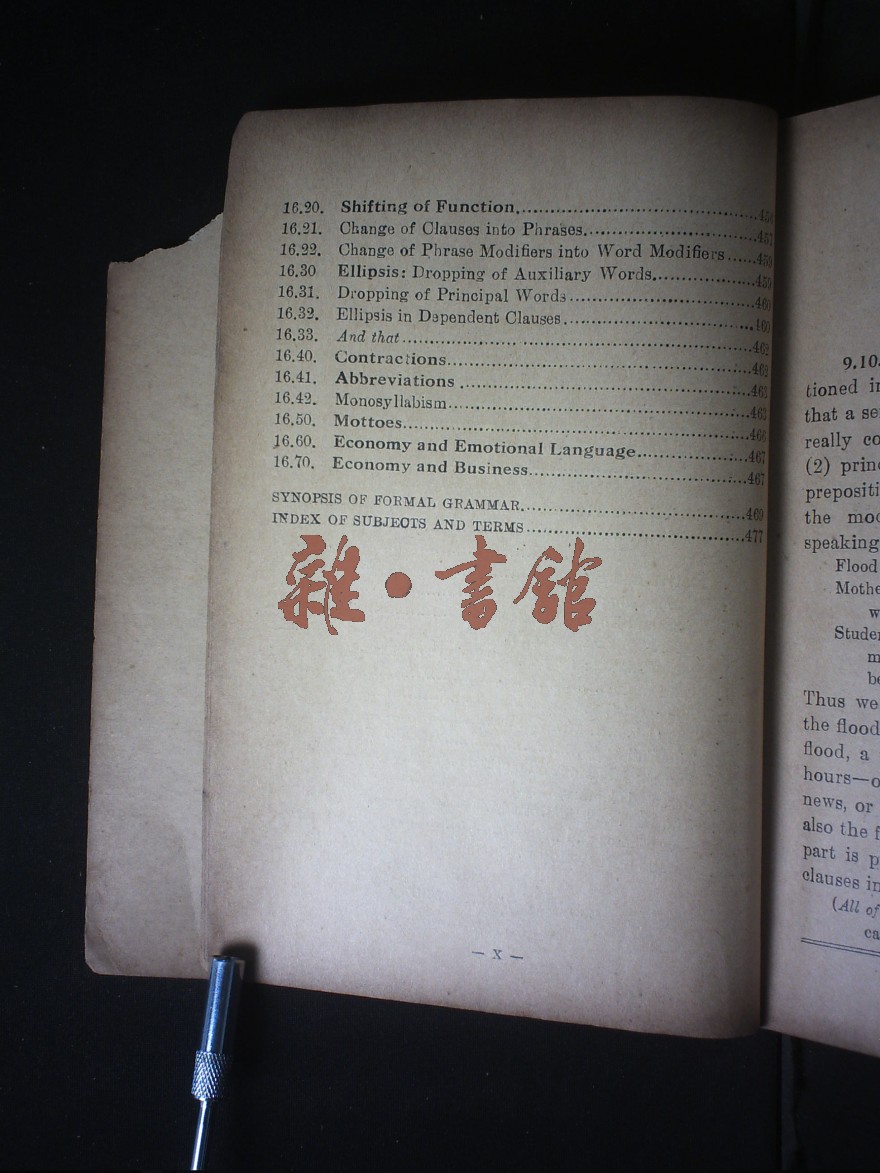 16.20. Shifting of Function
16.21. Change of Clauses into Phrases
16.22. Change of Phrase Modifiers into Word Modifiers......459
16.30 Ellipsis: Dropping of Auxiliary Words......459
16.31. Dropping of Principal Words......460
16.32. Ellipsis in Dependent Clauses......460
16.33. And that......462
16.40. Contractions......462
16.41. Abbreviations......463
16.42. Monosyllabism......463
16.50. Mottoes......466
16.60. Economy and Emotional Language......467
16.70. Economy and Business......467
SYNOPSIS OF FORMAL GRAMMAR......469
INDEX OF SUBJECTS AND TERMS......477
雜·書館
— X —
9.10.
tioned in
that a
really
(2)
the
speaking
Flood
Thus we
the flood
flood, a
hours—
news, or
also the
part is
clauses
(All of